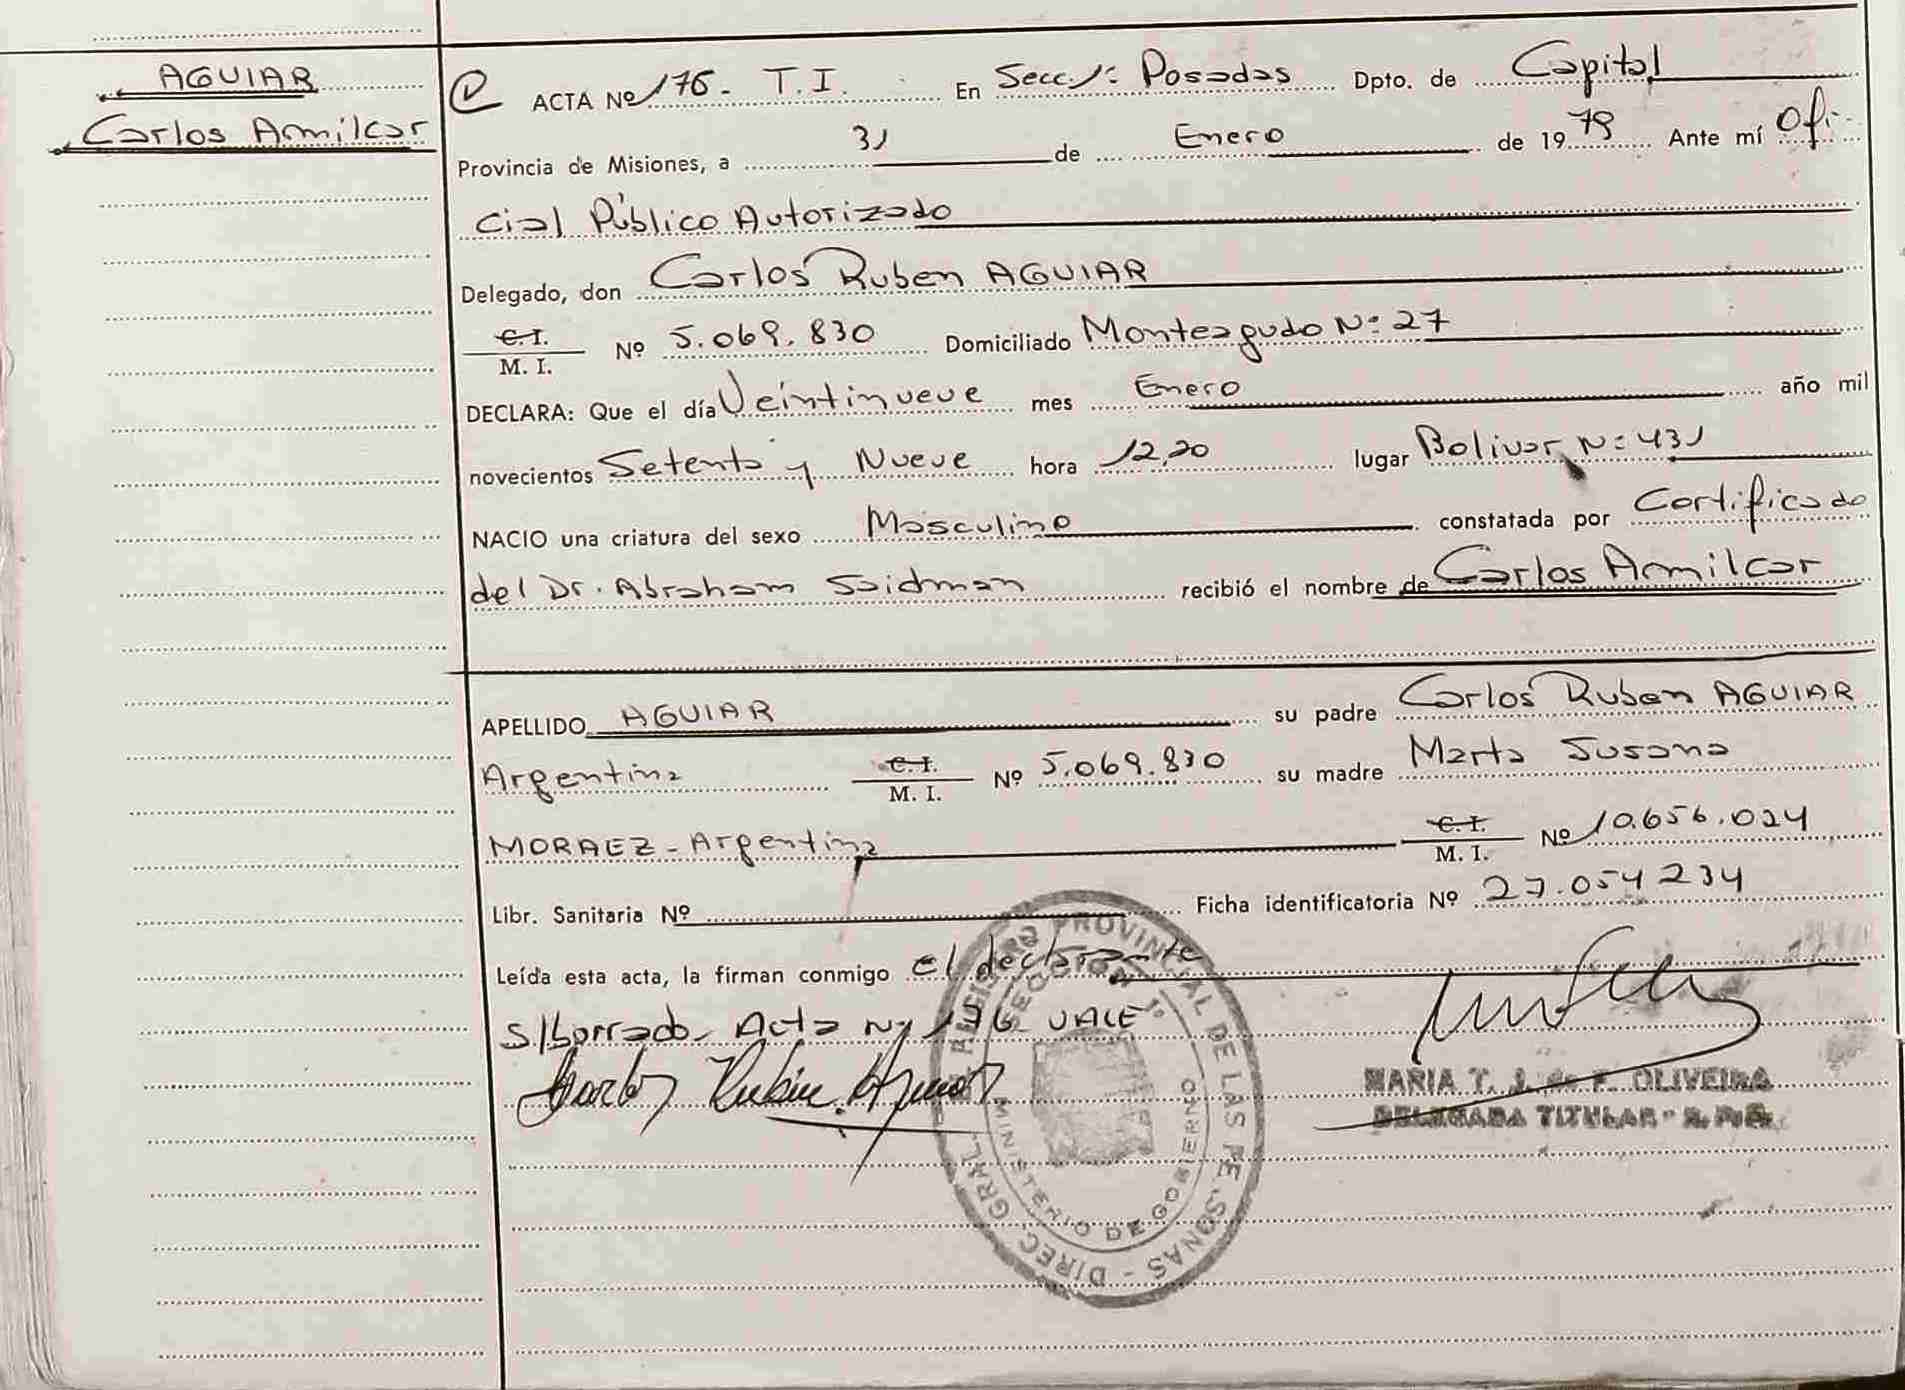 AGUIAR
Carlos Amilcar
ACTA Nº 176 - T.I. En Secc. 1ª Posadas Dpto. de Capital
Provincia de Misiones, a 31 de Enero de 1979 Ante mí Ofi-
cial Público Autorizado
Delegado, don Carlos Ruben AGUIAR
C.I.
M. I. Nº 5.069.830 Domiciliado Monteagudo Nº 27
DECLARA: Que el día Veintinueve mes Enero año mil
novecientos Setenta y Nueve hora 12,20 lugar Bolivar Nº 431
NACIO una criatura del sexo Masculino constatada por Certificado
del Dr. Abraham Saidman recibió el nombre de Carlos Amilcar
APELLIDO AGUIAR su padre Carlos Ruben AGUIAR
Argentina C.I. M. I. Nº 5.069.830 su madre Marta Susana
MORAEZ - Argentina C.I. M. I. Nº 10.656.024
Libr. Sanitaria Nº Ficha identificatoria Nº 27.054234
Leída esta acta, la firman conmigo el declarante
S/borrado - Acta Nº 176 VALE
Carlos Ruben Aguiar
MARIA T. J. de F. OLIVEIRA
DELEGADA TITULAR - R. P. G.
DIREC. GRAL. REGISTRO PROVINCIAL DE LAS PERSONAS
SECCION 1º
MINISTERIO DE GOBIERNO